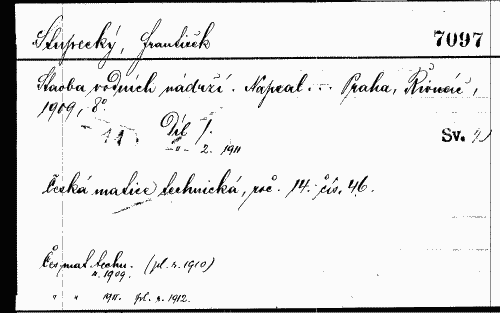 Stupecký, František
7097
Stavba vodních nádrží. Napsal. – Praha, Řivnáč,
1909, 8°.
Díl 1.
Sv.
—„— 2. 1911
Česká matice technická, roč. 14. čís. 46.
Čes. mat. techn. (pl. r. 1910)
r. 1909.
„ „ 1911. pl. r. 1912.